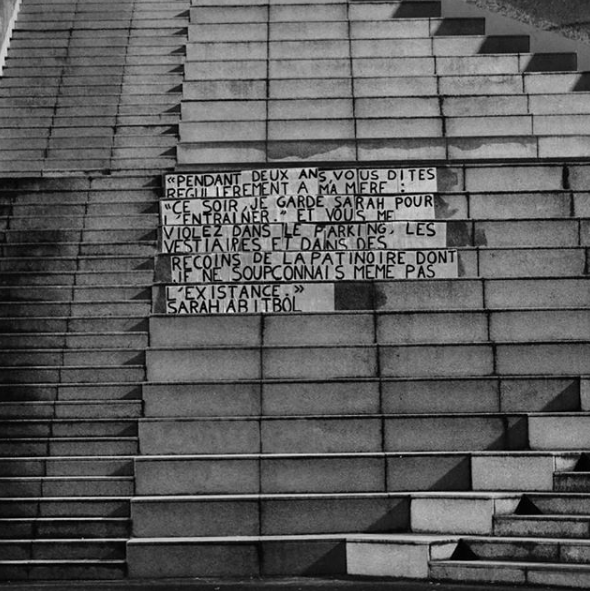 «PENDANT DEUX ANS, VOUS DITES
REGULIEREMENT A MA MERE :
"CE SOIR, JE GARDE SARAH POUR
L'ENTRAINER." ET VOUS ME
VIOLEZ DANS LE PARKING, LES
VESTIAIRES ET DANS DES
RECOINS DE LA PATINOIRE DONT
JE NE SOUPCONNAIS MEME PAS
L'EXISTANCE.»
SARAH ABITBOL